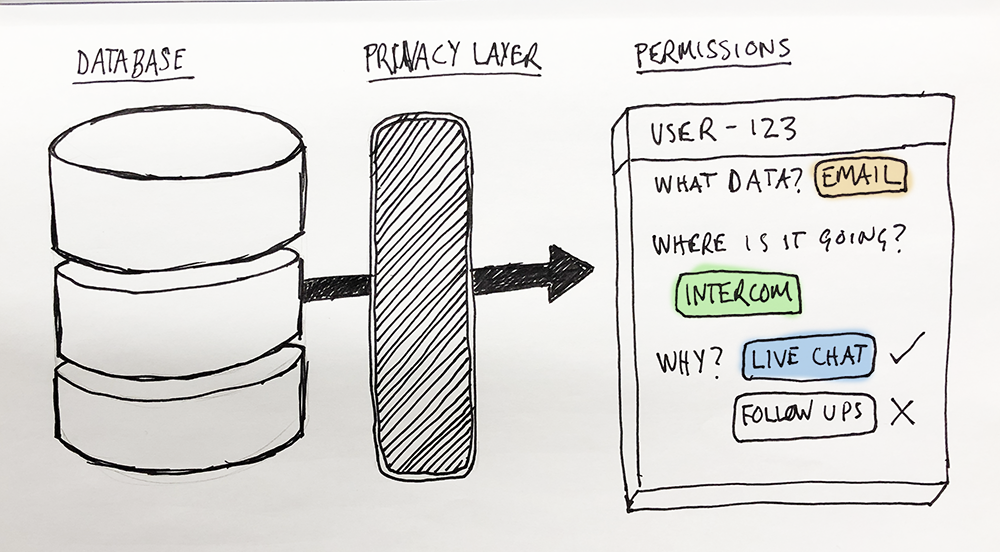 DATABASE
PRIVACY LAYER
PERMISSIONS
USER - 123
WHAT DATA? EMAIL
WHERE IS IT GOING?
INTERCOM
WHY? LIVE CHAT ✓
FOLLOW UPS X